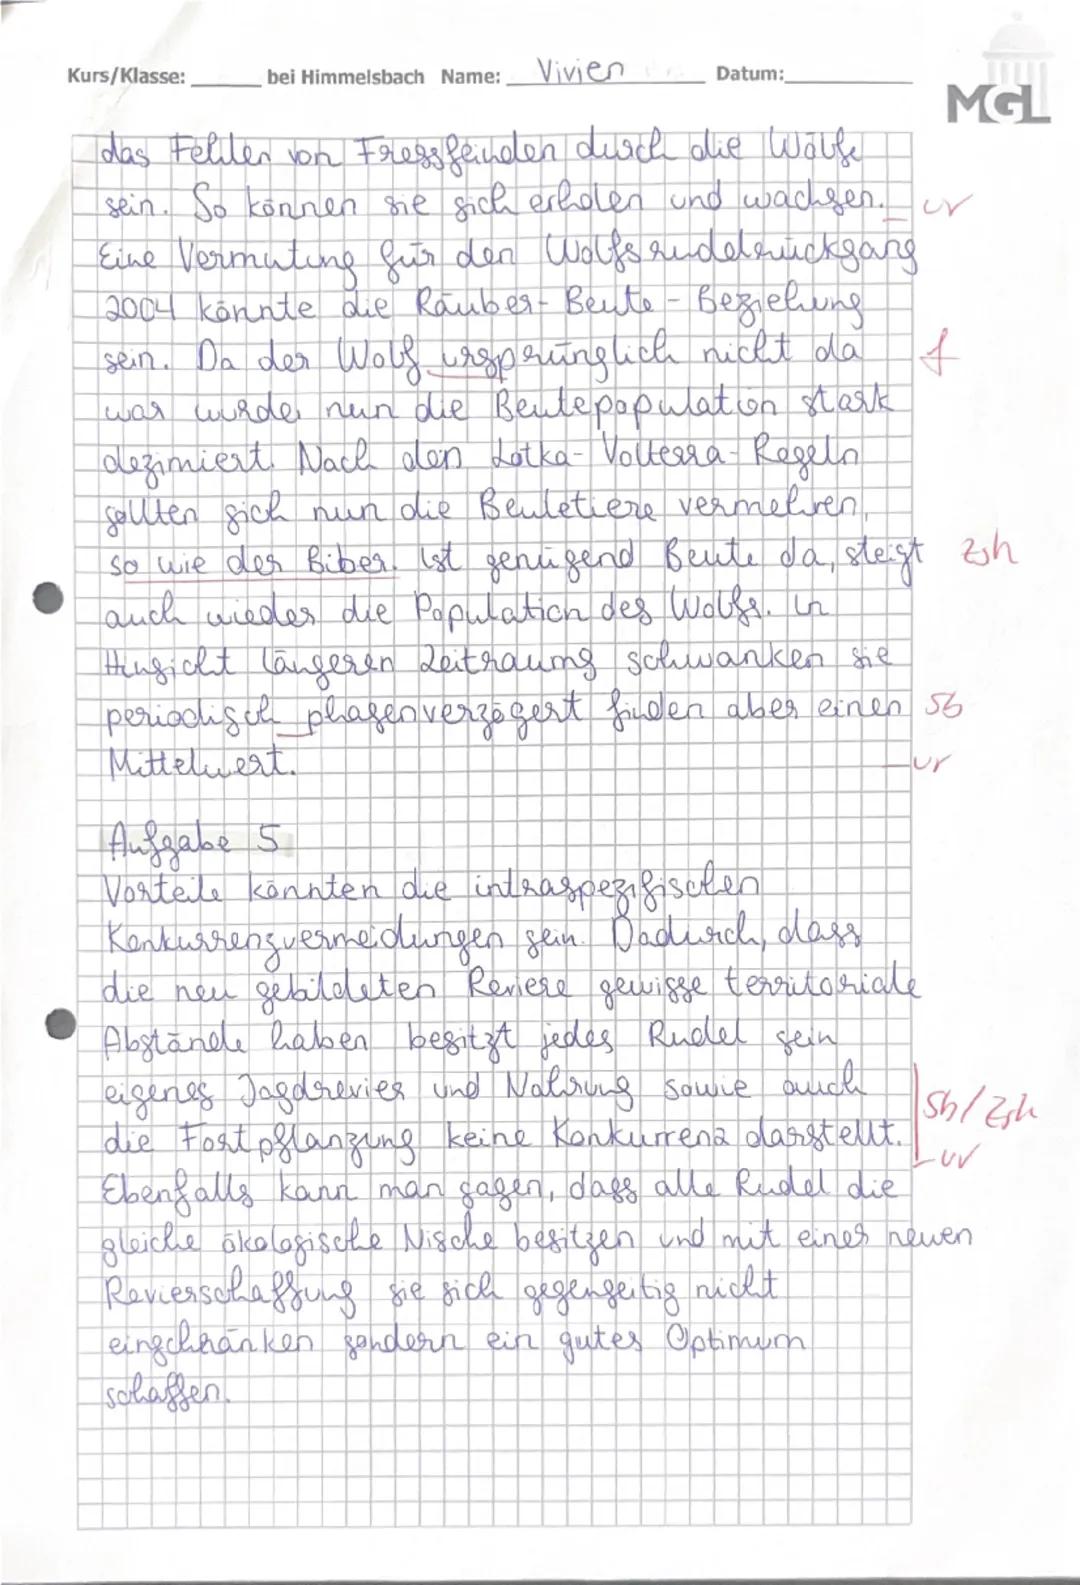 Kurs/Klasse: ______ bei Himmelsbach Name: Vivien Datum: ______
MGL
das Fehlen von Fressfeinden durch die Wölfe
sein. So können sie sich erholen und wachsen. ur
Eine Vermutung für den Wolfsrudelrückgang
2004 könnte die Räuber-Beute-Beziehung
sein. Da der Wolf ursprünglich nicht da f
war wurde nun die Beutepopulation stark
dezimiert. Nach den Lotka-Volterra-Regeln
sollten sich nun die Beutetiere vermehren,
so wie der Biber. Ist genügend Beute da, steigt Zsh
auch wieder die Population des Wolfs. In
Hinsicht längeren Zeitraums schwanken sie
periodisch phasenverzögert finden aber einen Sb
Mittelwert. ur
Aufgabe 5
Vorteile könnten die intraspezifischen
Konkurrenzvermeidungen sein. Dadurch, dass
die neu gebildeten Reviere gewisse territoriale
Abstände haben besitzt jedes Rudel sein
eigenes Jagdrevier und Nahrung sowie auch Sb/Zsh
die Fortpflanzung keine Konkurrenz darstellt. ur
Ebenfalls kann man sagen, dass alle Rudel die
gleiche ökologische Nische besitzen und mit einer neuen
Revierschaffung sie sich gegenseitig nicht
einschränken sondern ein gutes Optimum
schaffen.